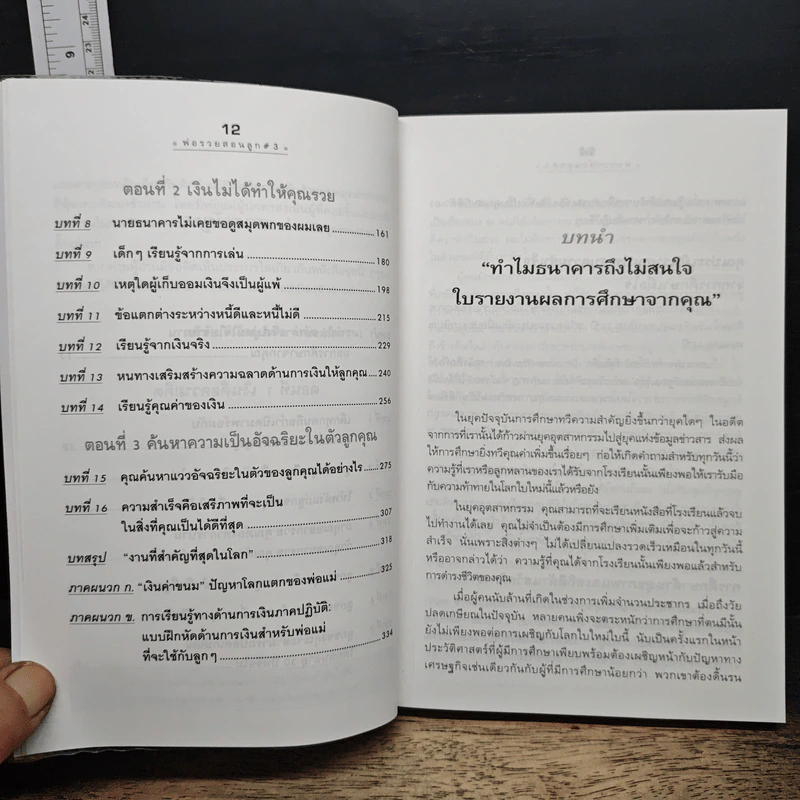 12
พ่อรวยสอนลูก#3
ตอนที่ 2 เงินไม่ได้ทำให้คุณรวย
บทที่ 8 นายธนาคารไม่เคยขอดูสมุดพกของผมเลย 161
บทที่ 9 เด็กๆ เรียนรู้จากการเล่น 180
บทที่ 10 เหตุใดผู้เก็บออมเงินจึงเป็นผู้แพ้ 198
บทที่ 11 ข้อแตกต่างระหว่างหนี้ดีและหนี้ไม่ดี 215
บทที่ 12 เรียนรู้จากเงินจริง 229
บทที่ 13 หนทางเสริมสร้างความฉลาดด้านการเงินให้ลูกคุณ 240
บทที่ 14 เรียนรู้คุณค่าของเงิน 256
ตอนที่ 3 ค้นหาความเป็นอัจฉริยะในตัวลูกคุณ
บทที่ 15 คุณค้นหาแววอัจฉริยะในตัวของลูกคุณได้อย่างไร 275
บทที่ 16 ความสำเร็จคือเสรีภาพที่จะเป็น
ในสิ่งที่คุณเป็นได้ดีที่สุด 307
บทสรุป "งานที่สำคัญที่สุดในโลก" 318
ภาคผนวก ก. "เงินค่าขนม" ปัญหาโลกแตกของพ่อแม่ 325
ภาคผนวก ข. การเรียนรู้ทางด้านการเงินภาคปฏิบัติ:
แบบฝึกหัดด้านการเงินสำหรับพ่อแม่
ที่จะใช้กับลูกๆ 334
บทนำ
"ทำไมธนาคารถึงไม่สนใจ
ใบรายงานผลการศึกษาจากคุณ"
ในยุคปัจจุบันการศึกษาทวีความสำคัญยิ่งขึ้นกว่ายุคใดๆ ในอดีต
จากการที่เรานั้นได้ก้าวผ่านยุคอุตสาหกรรมไปสู่ยุคแห่งข้อมูลข่าวสาร ส่งผล
ให้การศึกษายิ่งทวีคุณค่าเพิ่มขึ้นเรื่อยๆ ก่อให้เกิดคำถามสำหรับทุกวันนี้ว่า
ความรู้ที่เราหรือลูกหลานของเราได้รับจากโรงเรียนนั้นเพียงพอให้เรารับมือ
กับความท้าทายในโลกใบใหม่นี้แล้วหรือยัง
ในยุคอุตสาหกรรม คุณสามารถที่จะเรียนหนังสือที่โรงเรียนแล้วจบ
ไปทำงานได้เลย คุณไม่จำเป็นต้องมีการศึกษาเพิ่มเติมเพื่อจะก้าวสู่ความ
สำเร็จ นั่นเพราะสิ่งต่างๆ ไม่ได้เปลี่ยนแปลงรวดเร็วเหมือนในทุกวันนี้
หรืออาจกล่าวได้ว่า ความรู้ที่คุณได้จากโรงเรียนนั้นเพียงพอแล้วสำหรับ
การดำรงชีวิตของคุณ
เมื่อผู้คนนับล้านที่เกิดในช่วงการเพิ่มจำนวนประชากร เมื่อถึงวัย
ปลดเกษียณในปัจจุบัน หลายคนเพิ่งจะตระหนักว่าการศึกษาที่ตนมีนั้น
ยังไม่เพียงพอต่อการเผชิญกับโลกใบใหม่ใบนี้ นับเป็นครั้งแรกในหน้า
ประวัติศาสตร์ที่ผู้มีการศึกษาเพียบพร้อมต้องเผชิญหน้ากับปัญหาทาง
เศรษฐกิจเช่นเดียวกันกับผู้ที่มีการศึกษาน้อยกว่า พวกเขาต้องดิ้นรน